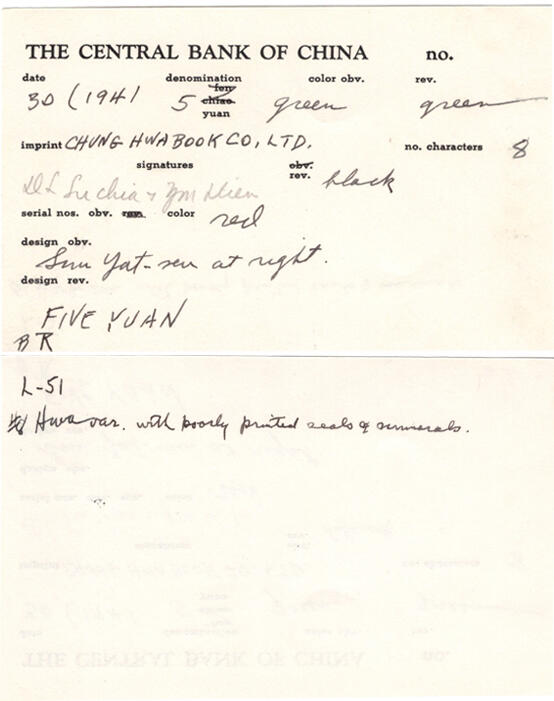 THE CENTRAL BANK OF CHINA no.
date denomination color obv. rev.
fen
30 (1941 5 chiao green green
yuan
imprint CHUNG HWA BOOK CO., LTD. no. characters 8
signatures obv.
rev. black
D L Li chia &
serial nos. obv. rev. color red
design obv.
Sun Yat-sen at right.
design rev.
FIVE YUAN
BR
L-51
Hwa var. with poorly printed seals & numerals.